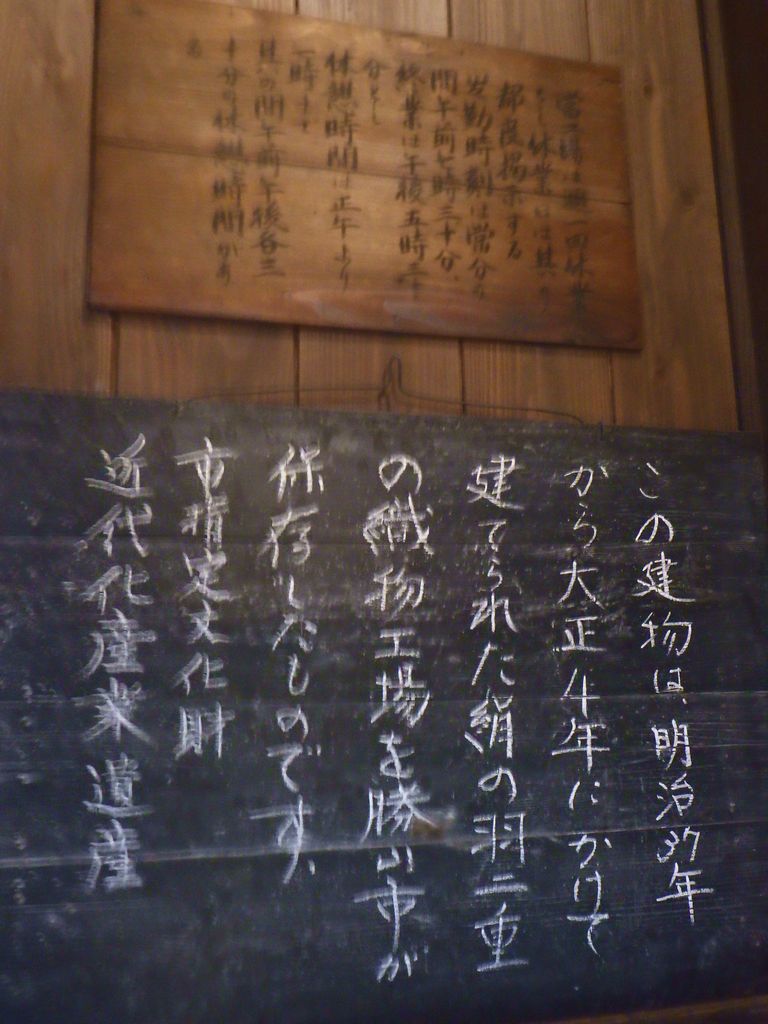 当工場は週一回休業
もし休業には其の
都度掲示する
出勤時刻は常分の
間午前七時三十分、
終業は午後五時三十
分とし
休憩時間は正午より
一時まで
其の間午前午後各三
十分の休憩時間があ
る
この建物は、明治37年
から大正4年にかけて
建てられた絹の羽二重
の織物工場を勝山市が
保存したものです。
市指定文化財
近代化産業遺産